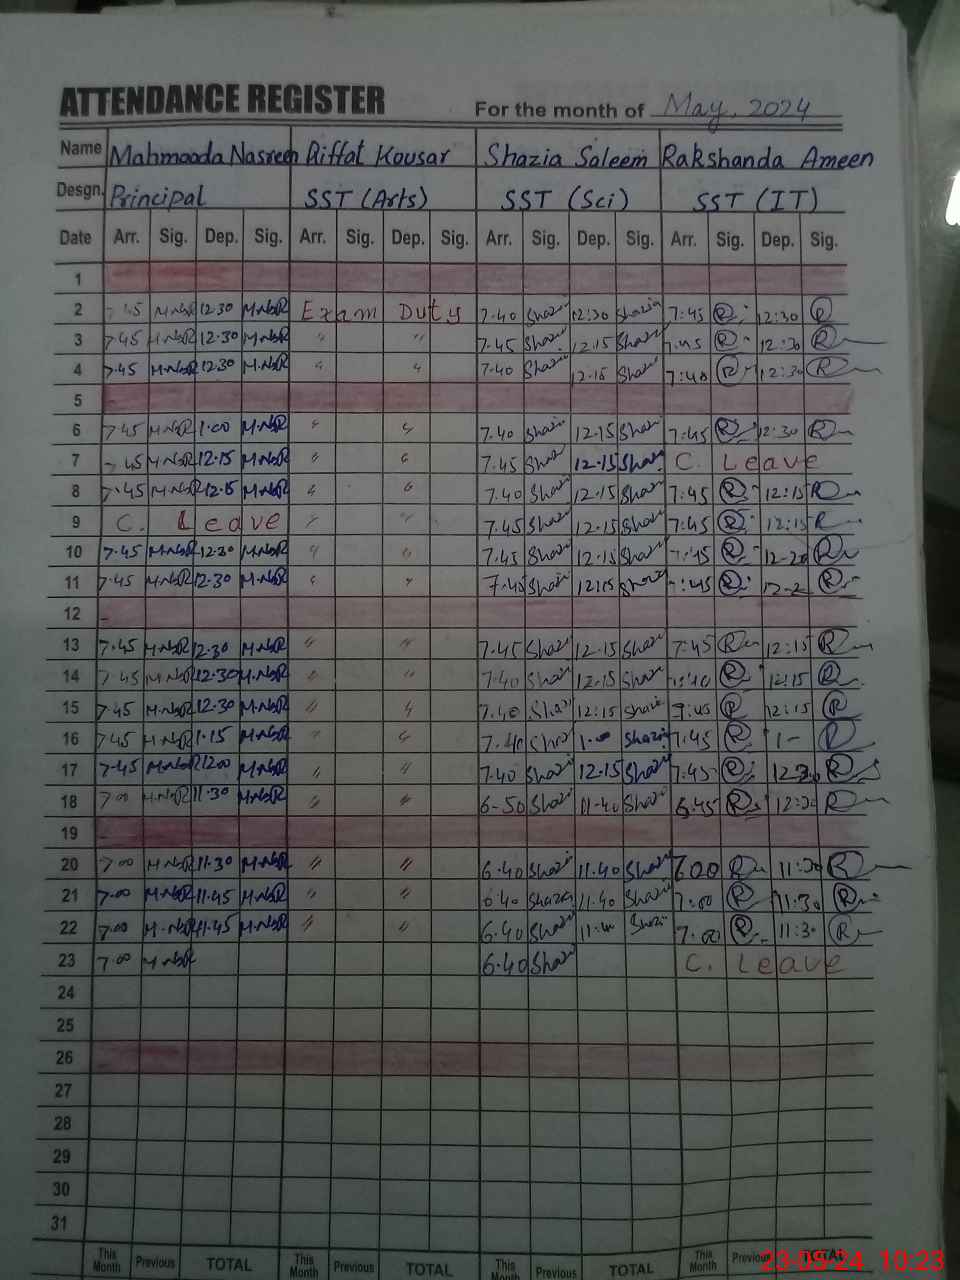 ATTENDANCE REGISTER For the month of May, 2024
Name Mahmooda Nasreen Riffat Kousar Shazia Saleem Rakshanda Ameen
Desgn. Principal SST (Arts) SST (Sci) SST (IT)
Date Arr. Sig. Dep. Sig. Arr. Sig. Dep. Sig. Arr. Sig. Dep. Sig. Arr. Sig. Dep. Sig.
1
2 7.45 12.30 Exam Duty 7.40 Shazi 12:30 Shazia 7:45 R 12:30 R
3 7.45 12.30 " " 7.45 Shazi 12.15 Shazi 7:45 R 12:30 R
4 7.45 12.30 " " 7.40 Shazi 12.15 Shazi 7:40 R 12:30 R
5
6 7.45 1.00 " " 7.40 Shazi 12.15 Shazi 7:45 R 12:30 R
7 7.45 12.15 " " 7.45 Shazi 12.15 Shazi C. Leave
8 7.45 12.15 " " 7.40 Shazi 12.15 Shazi 7:45 R 12:15 R
9 C. Leave " " 7.45 Shazi 12.15 Shazi 7:45 R 12:15 R
10 7.45 12.30 " " 7.45 Shazi 12.15 Shazi 7:45 R 12-20 R
11 7.45 12.30 " " 7.45 Shazi 12.15 Shazi 7:45 R R
12
13 7.45 12.30 " " 7.45 Shazi 12.15 Shazi 7:45 R 12:15 R
14 7.45 12.30 " " 7.40 Shazi 12.15 Shazi R 12:15 R
15 7.45 12.30 " " 7.40 Shazi 12:15 Shazi 7:45 R 12:15 R
16 7.45 1.15 " " 7.40 Shazi 1.00 Shazi 7:45 R 1- R
17 7.45 1200 " " 7.40 Shazi 12.15 Shazi 7:45 R R
18 7.00 11.30 " " 6-50 Shazi 11-40 Shazi 6.45 R R
19
20 7.00 11.30 " " 6.40 Shazi 11.40 Shazi R 11:30 R
21 7.00 11.45 " " 6.40 Shazi 11.40 Shazi 7:00 R 11:30 R
22 7.00 11.45 " " 6.40 Shazi Shazi 7.00 R 11:30 R
23 7.00 6.40 Shazi C. Leave
24
25
26
27
28
29
30
31
This Month Previous TOTAL This Month Previous TOTAL This Month Previous TOTAL This Month Previous TOTAL
23-05-24 10:23